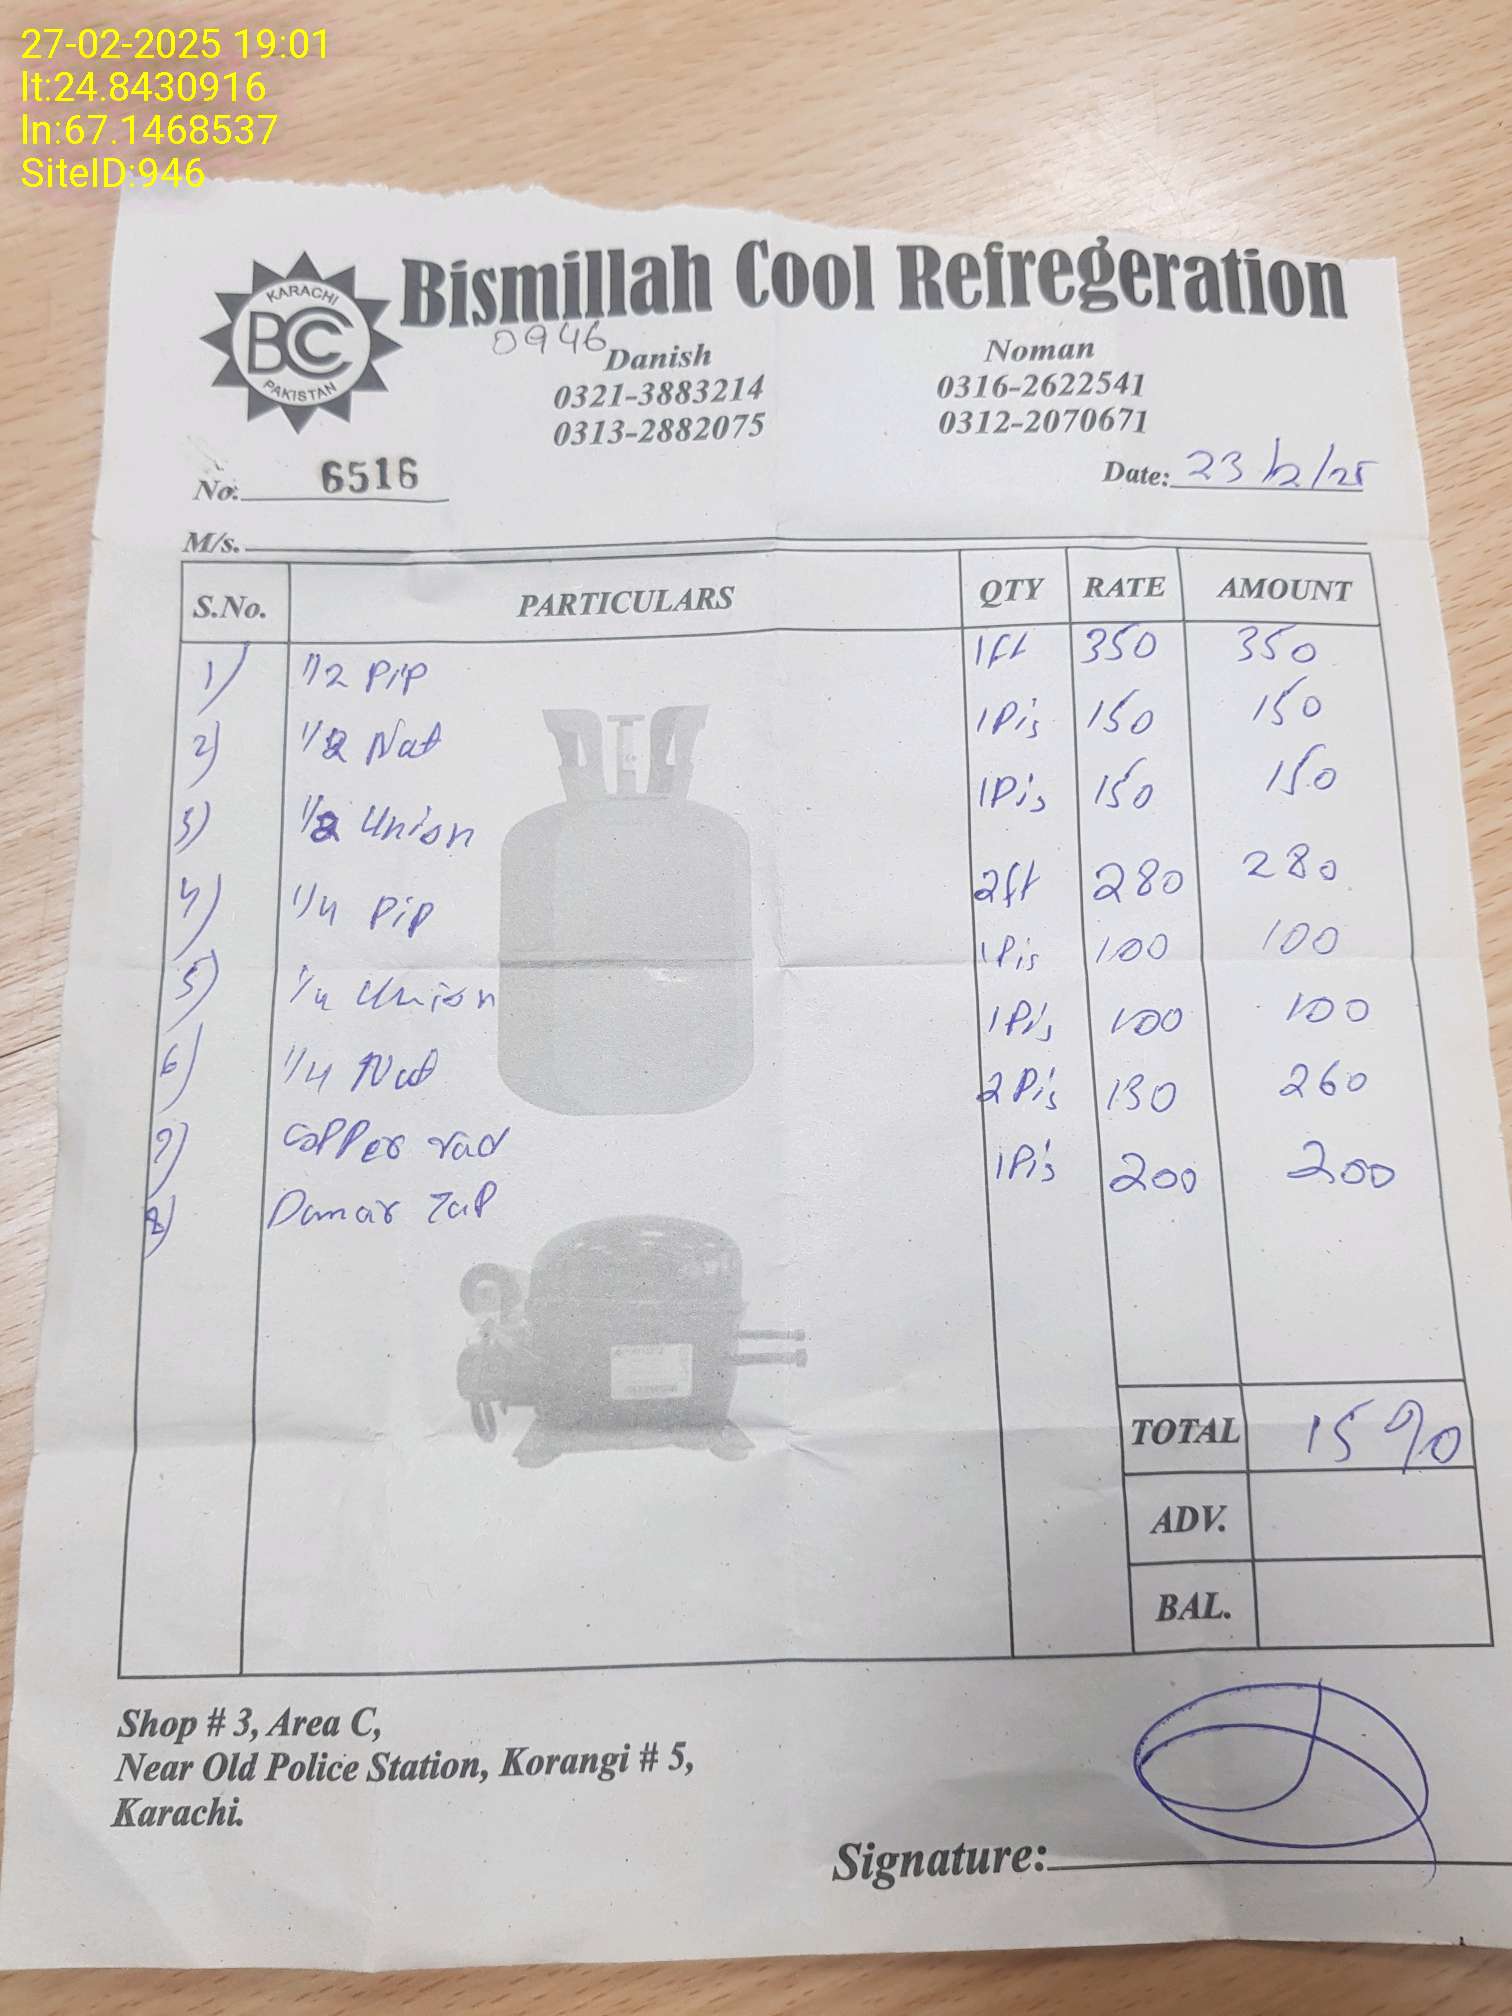 27-02-2025 19:01
lt:24.8430916
ln:67.1468537
SiteID:946
KARACHI
BCC
PAKISTAN
Bismillah Cool Refregeration
0946
Danish Noman
0321-3883214 0316-2622541
0313-2882075 0312-2070671
No. 6516 Date: 23/2/25
M/s.
S.No. PARTICULARS QTY RATE AMOUNT
1) 1/2 Pip 1ft 350 350
2) 1/2 Nat 1Pis 150 150
3) 1/2 Union 1Pis 150 150
4) 1/4 Pip 2ft 280 280
5) 1/4 Union 1Pis 100 100
6) 1/4 Nut 1Pis 100 100
7) Copper rad 2Pis 130 260
8) Damar Tap 1Pis 200 200
TOTAL 1590
ADV.
BAL.
Shop # 3, Area C,
Near Old Police Station, Korangi # 5,
Karachi.
Signature: